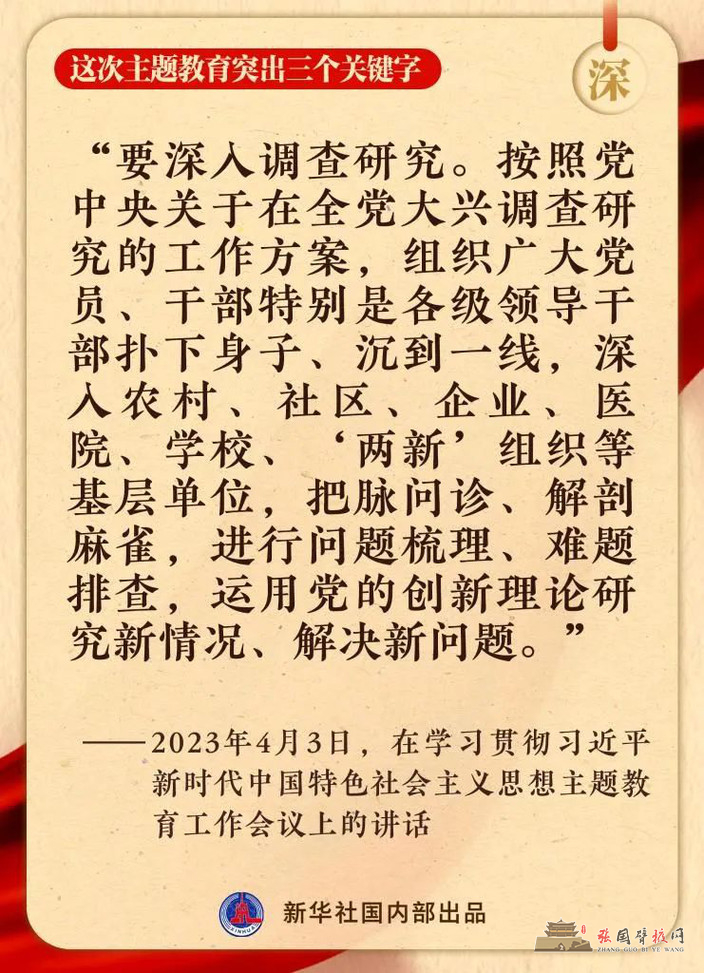 这次主题教育突出三个关键字
深
“要深入调查研究。按照党
中央关于在全党大兴调查研
究的工作方案，组织广大党
员、干部特别是各级领导干
部扑下身子、沉到一线，深
入农村、社区、企业、医
院、学校、‘两新’组织等
基层单位，把脉问诊、解剖
麻雀，进行问题梳理、难题
排查，运用党的创新理论研
究新情况、解决新问题。”
——2023年4月3日，在学习贯彻习近平
新时代中国特色社会主义思想主题教
育工作会议上的讲话
XINHUA
新华社国内部出品
张国臂掖网
ZHANG GUO BI YE WANG